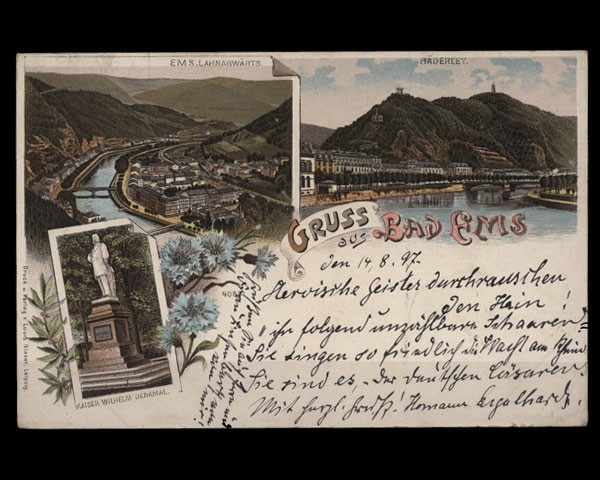 EMS, LAHNARWÄRTS.
BÄDERLEY.
GRUSS
aus BAD EMS
den 14.8.97.
Heroische Geister durchrauschen
den Hain!
"ihr folgend unzählbare Schaaren=
Sie singen so friedlich die Wacht am Rhein
Sie sind es, der deutschen Cäsaren,
Mit herzl. Gruß! Hermann
KAISER WILHELM DENKMAL.
Druck u. Verlag v. Louis Glaser, Leipzig.